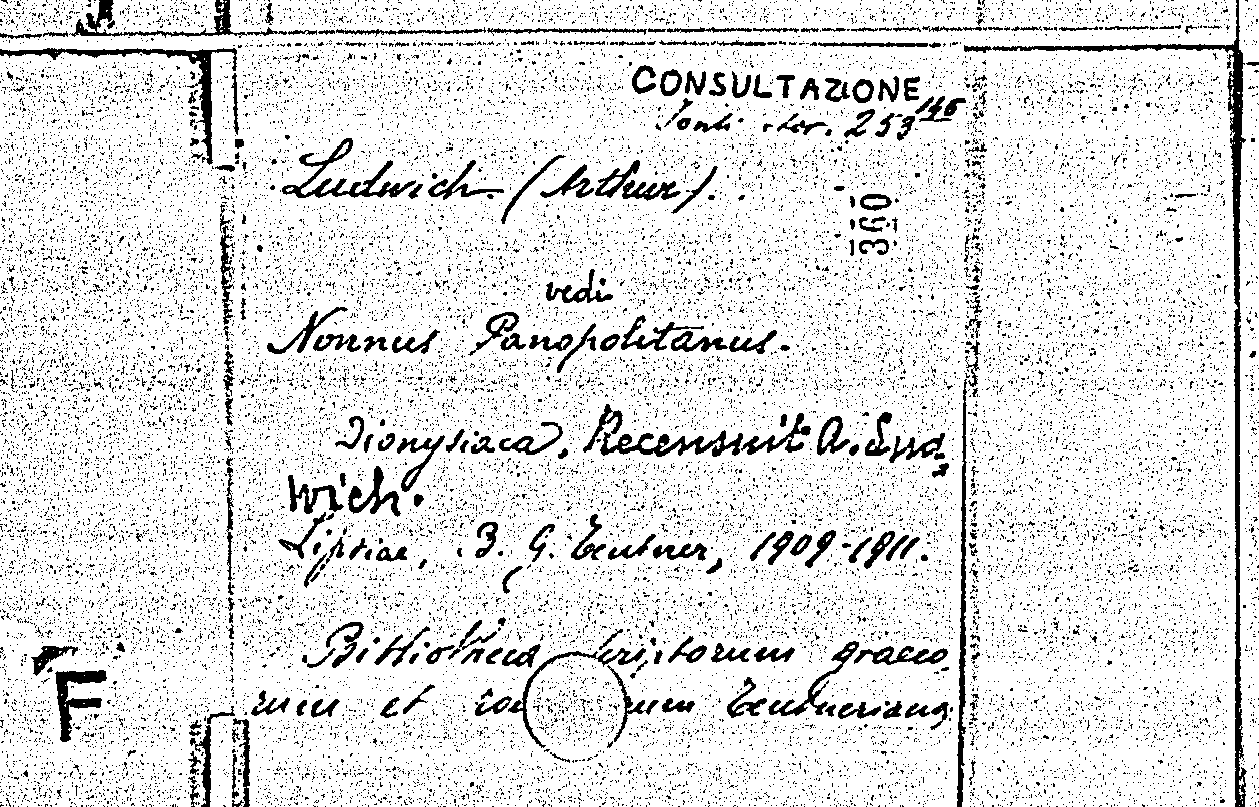 CONSULTAZIONE
253 146
Ludwich (Arthur).
360
vedi
Nonnus Panopolitanus.
Dionysiaca. Recensuit A. Lud=
wich.
Lipsiae, B. G. Teubner, 1909-1911.
Bibliotheca scriptorum graeco
rum et Teubneriana
F